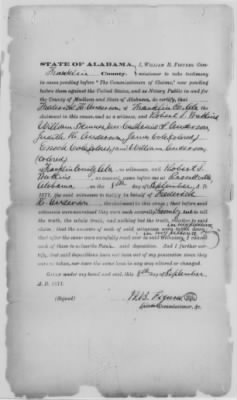 STATE OF ALABAMA, I, WILLIAM B. FIGURES, Com-
Franklin County. missioner to take testimony
in cases pending before "The Commissioners of Claims," and now pending
before them against the United States, and as Notary Public in and for
the County of Madison and State of Alabama, do certify, that
Frederick C. Anderson of Franklin Co. Ala
claimant in this cause, and as a witness, and Robert S. Watkins
William
Judith H. Anderson,
Enoch and William Anderson
(colored)
Franklin County Ala, as witnesses, said Robert S.
Watkins witness, came before me at Russellville,
Alabama on the 8th day of September, A. D.
1877, the said witnesses to testify in behalf of Frederick
C. Anderson the claimant in this cause; that before said
witnesses were examined they were each severally sworn by me to tell
the truth, the whole truth, and nothing but the truth, relative to said
claim; that the answers of each of said witnesses were taken down
in my presence
that after the same were carefully read over to said witnesses, I caused
each of them to subscribe deposition. And I further cer-
tify, that said depositions have not been out of my possession since they
were so taken, nor have the same been in any way altered or changed.
Given under my hand and seal, this 8th day of September
A. D. 1877.
(Signed) W. B. Figures
Special Commissioner, &c.